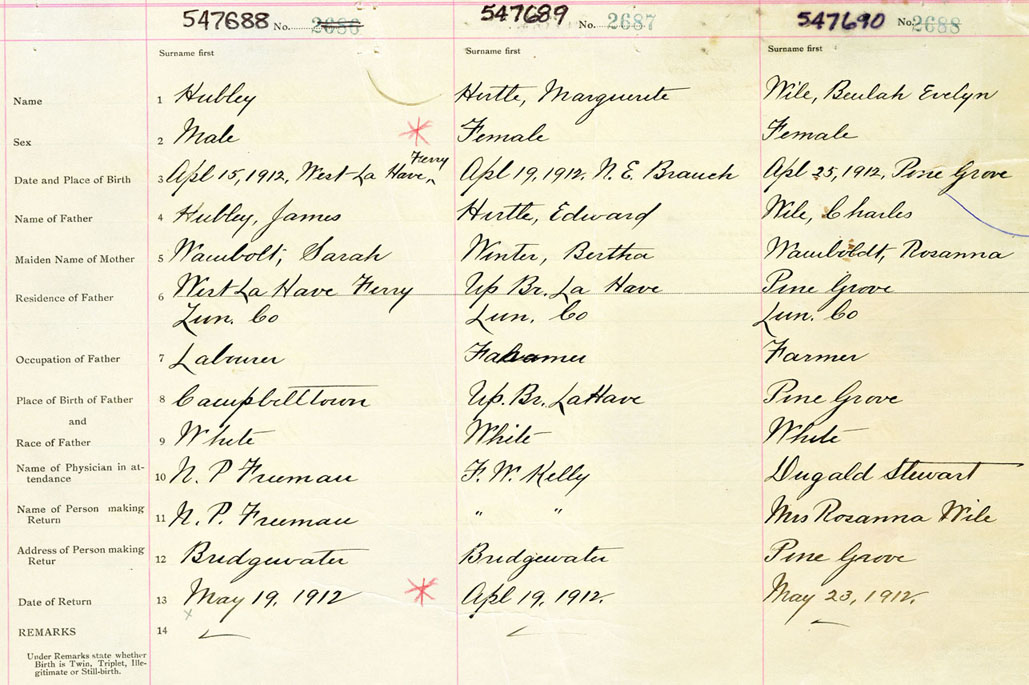 547688 No. 2686 547689 No. 2687 547690 No. 2688
Surname first Surname first Surname first
Name 1 Hubley Hirtle, Marguerite Wile, Beulah Evelyn
Sex 2 Male Female Female
Ferry
Date and Place of Birth 3 Apl 15, 1912, West La Have, Apl 19, 1912, N. E. Branch Apl 25, 1912, Pine Grove
Name of Father 4 Hubley, James Hirtle, Edward Wile, Charles
Maiden Name of Mother 5 Wambolt, Sarah Winter, Bertha Wamboldt, Rosanna
Residence of Father 6 West La Have Ferry Up Br. La Have Pine Grove
Lun. Co Lun. Co Lun. Co
Occupation of Father 7 Labourer Farmer
Place of Birth of Father 8 Campbelltown Up. Br. LaHave Pine Grove
and
Race of Father 9 White White White
Name of Physician in at-
tendance 10 N. P Freeman F. W. Kelly Dugald Stewart
Name of Person making
Return 11 N. P. Freeman " " Mrs Rosanna Wile
Address of Person making
Retur 12 Bridgewater Bridgewater Pine Grove
Date of Return 13 May 19, 1912 Apl 19, 1912. May 23, 1912.
REMARKS 14
Under Remarks state whether
Birth is Twin, Triplet, Ille-
gitimate or Still-birth.